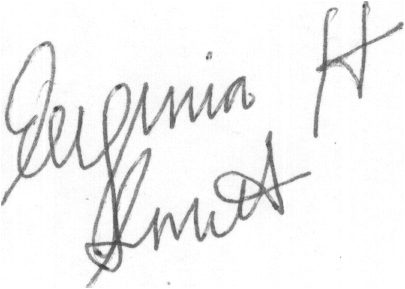 Virginia H
Smith